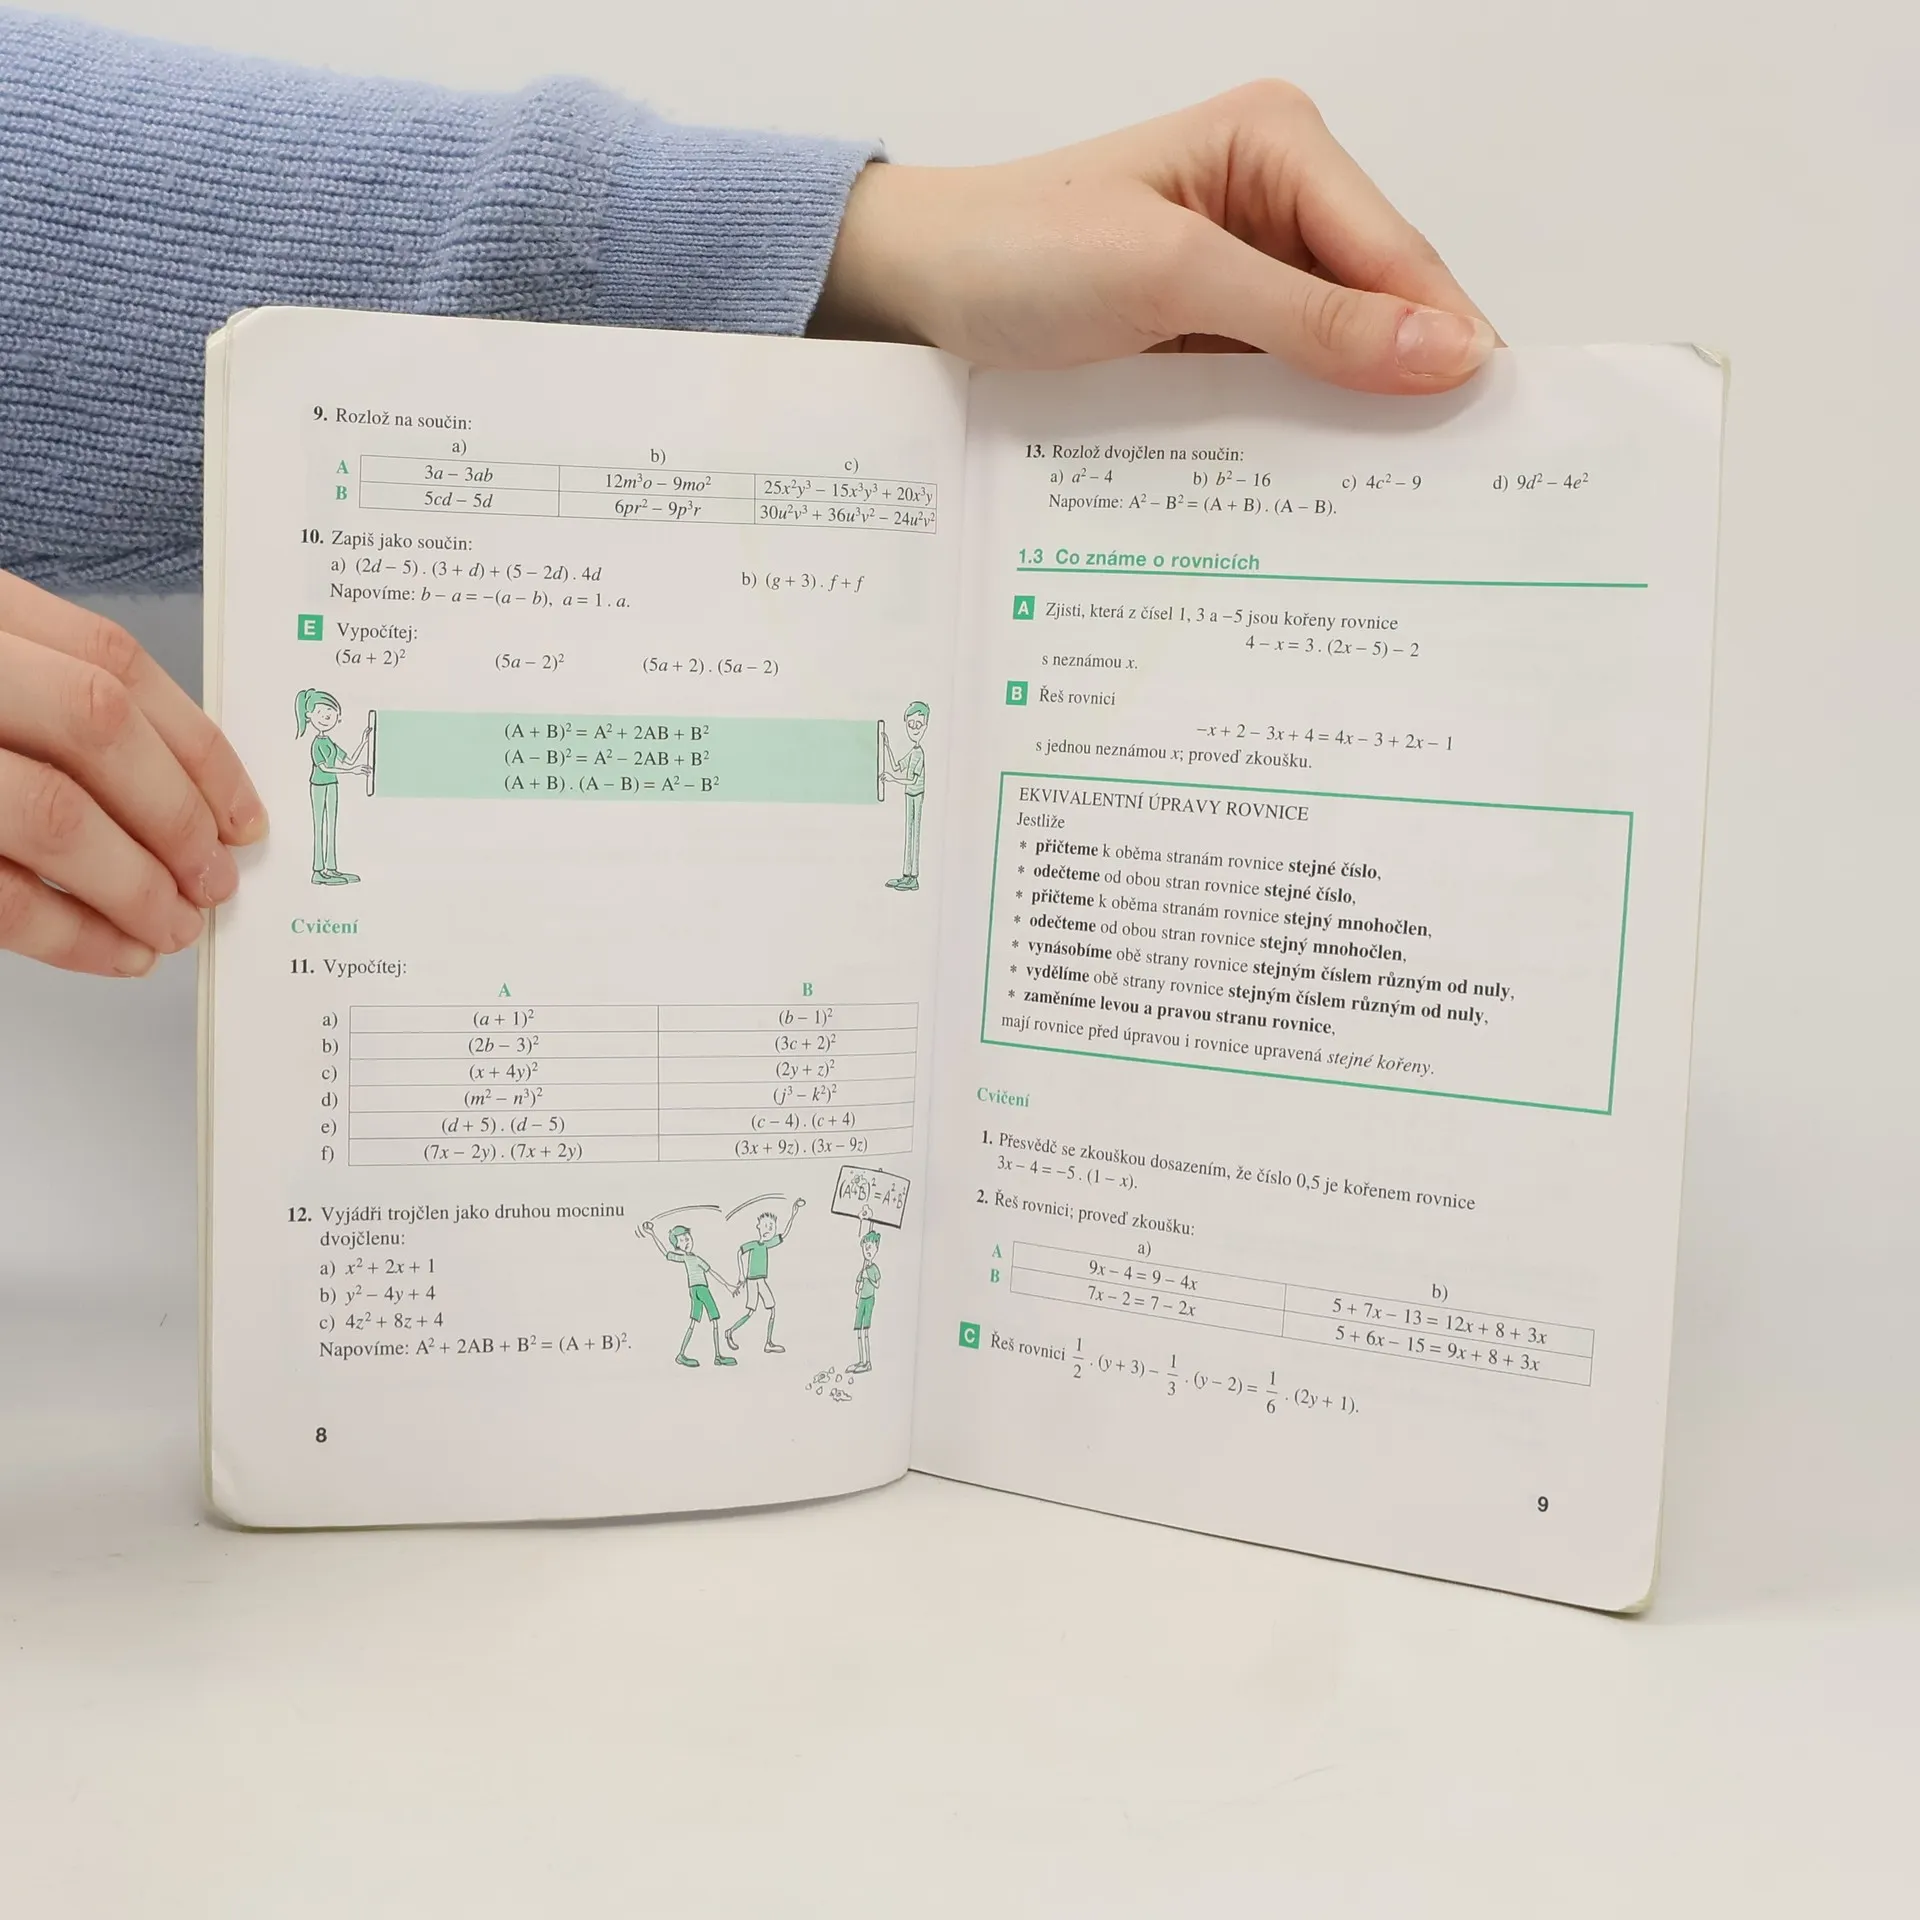 9. Rozlož na součin:
a) b) c)
A 3a – 3ab 12m³o – 9mo² 25x²y³ – 15x³y³ + 20x³y
B 5cd – 5d 6pr² – 9p³r 30u²v³ + 36u³v² – 24u²v²
10. Zapiš jako součin:
a) (2d – 5) . (3 + d) + (5 – 2d) . 4d b) (g + 3) . f + f
Napovíme: b – a = –(a – b), a = 1 . a.
E Vypočítej:
(5a + 2)² (5a – 2)² (5a + 2) . (5a – 2)
(A + B)² = A² + 2AB + B²
(A – B)² = A² – 2AB + B²
(A + B) . (A – B) = A² – B²
Cvičení
11. Vypočítej:
A B
a) (a + 1)² (b – 1)²
b) (2b – 3)² (3c + 2)²
c) (x + 4y)² (2y + z)²
d) (m² – n³)² (j³ – k²)²
e) (d + 5) . (d – 5) (c – 4) . (c + 4)
f) (7x – 2y) . (7x + 2y) (3x + 9z) . (3x – 9z)
(A+B)² = A²+B²
12. Vyjádři trojčlen jako druhou mocninu
dvojčlenu:
a) x² + 2x + 1
b) y² – 4y + 4
c) 4z² + 8z + 4
Napovíme: A² + 2AB + B² = (A + B)².
8
13. Rozlož dvojčlen na součin:
a) a² – 4 b) b² – 16 c) 4c² – 9 d) 9d² – 4e²
Napovíme: A² – B² = (A + B) . (A – B).
1.3 Co známe o rovnicích
A Zjisti, která z čísel 1, 3 a –5 jsou kořeny rovnice
4 – x = 3 . (2x – 5) – 2
s neznámou x.
B Řeš rovnici
–x + 2 – 3x + 4 = 4x – 3 + 2x – 1
s jednou neznámou x; proveď zkoušku.
EKVIVALENTNÍ ÚPRAVY ROVNICE
Jestliže
* přičteme k oběma stranám rovnice stejné číslo,
* odečteme od obou stran rovnice stejné číslo,
* přičteme k oběma stranám rovnice stejný mnohočlen,
* odečteme od obou stran rovnice stejný mnohočlen,
* vynásobíme obě strany rovnice stejným číslem různým od nuly,
* vydělíme obě strany rovnice stejným číslem různým od nuly,
* zaměníme levou a pravou stranu rovnice,
mají rovnice před úpravou i rovnice upravená stejné kořeny.
Cvičení
1. Přesvědč se zkouškou dosazením, že číslo 0,5 je kořenem rovnice
3x – 4 = –5 . (1 – x).
2. Řeš rovnici; proveď zkoušku:
a) b)
A 9x – 4 = 9 – 4x 5 + 7x – 13 = 12x + 8 + 3x
B 7x – 2 = 7 – 2x 5 + 6x – 15 = 9x + 8 + 3x
C Řeš rovnici 1/2 . (y + 3) – 1/3 . (y – 2) = 1/6 . (2y + 1).
9